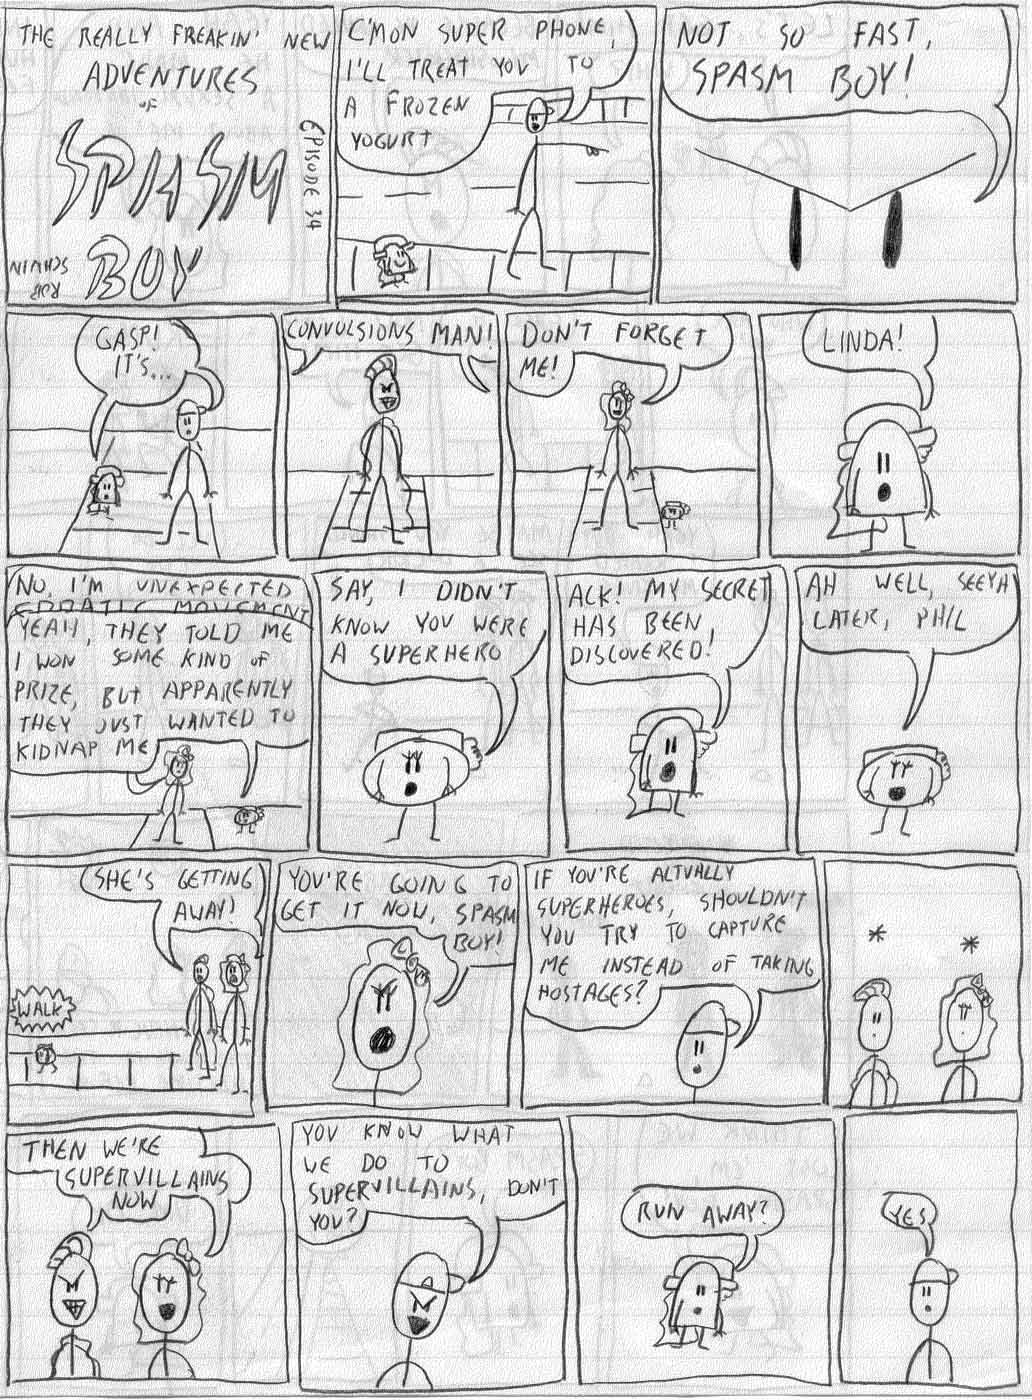 THE REALLY FREAKIN' NEW
ADVENTURES
OF
SPASM
BOY
EPISODE 34
ROB
SCHWIN
C'MON SUPER PHONE,
I'LL TREAT YOU TO
A FROZEN
YOGURT
NOT SO FAST,
SPASM BOY!
GASP!
IT'S...
CONVULSIONS MAN!
DON'T FORGET
ME!
LINDA!
NO, I'M UNEXPECTED
ERRATIC MOVEMENT
YEAH, THEY TOLD ME
I WON SOME KIND OF
PRIZE, BUT APPARENTLY
THEY JUST WANTED TO
KIDNAP ME
SAY, I DIDN'T
KNOW YOU WERE
A SUPERHERO
ACK! MY SECRET
HAS BEEN
DISCOVERED!
AH WELL, SEEYA
LATER, PHIL
SHE'S GETTING
AWAY!
WALK
YOU'RE GOING TO
GET IT NOW, SPASM
BOY!
IF YOU'RE ACTUALLY
SUPERHEROES, SHOULDN'T
YOU TRY TO CAPTURE
ME INSTEAD OF TAKING
HOSTAGES?
* *
THEN WE'RE
SUPERVILLAINS
NOW
YOU KNOW WHAT
WE DO TO
SUPERVILLAINS, DON'T
YOU?
RUN AWAY?
YES